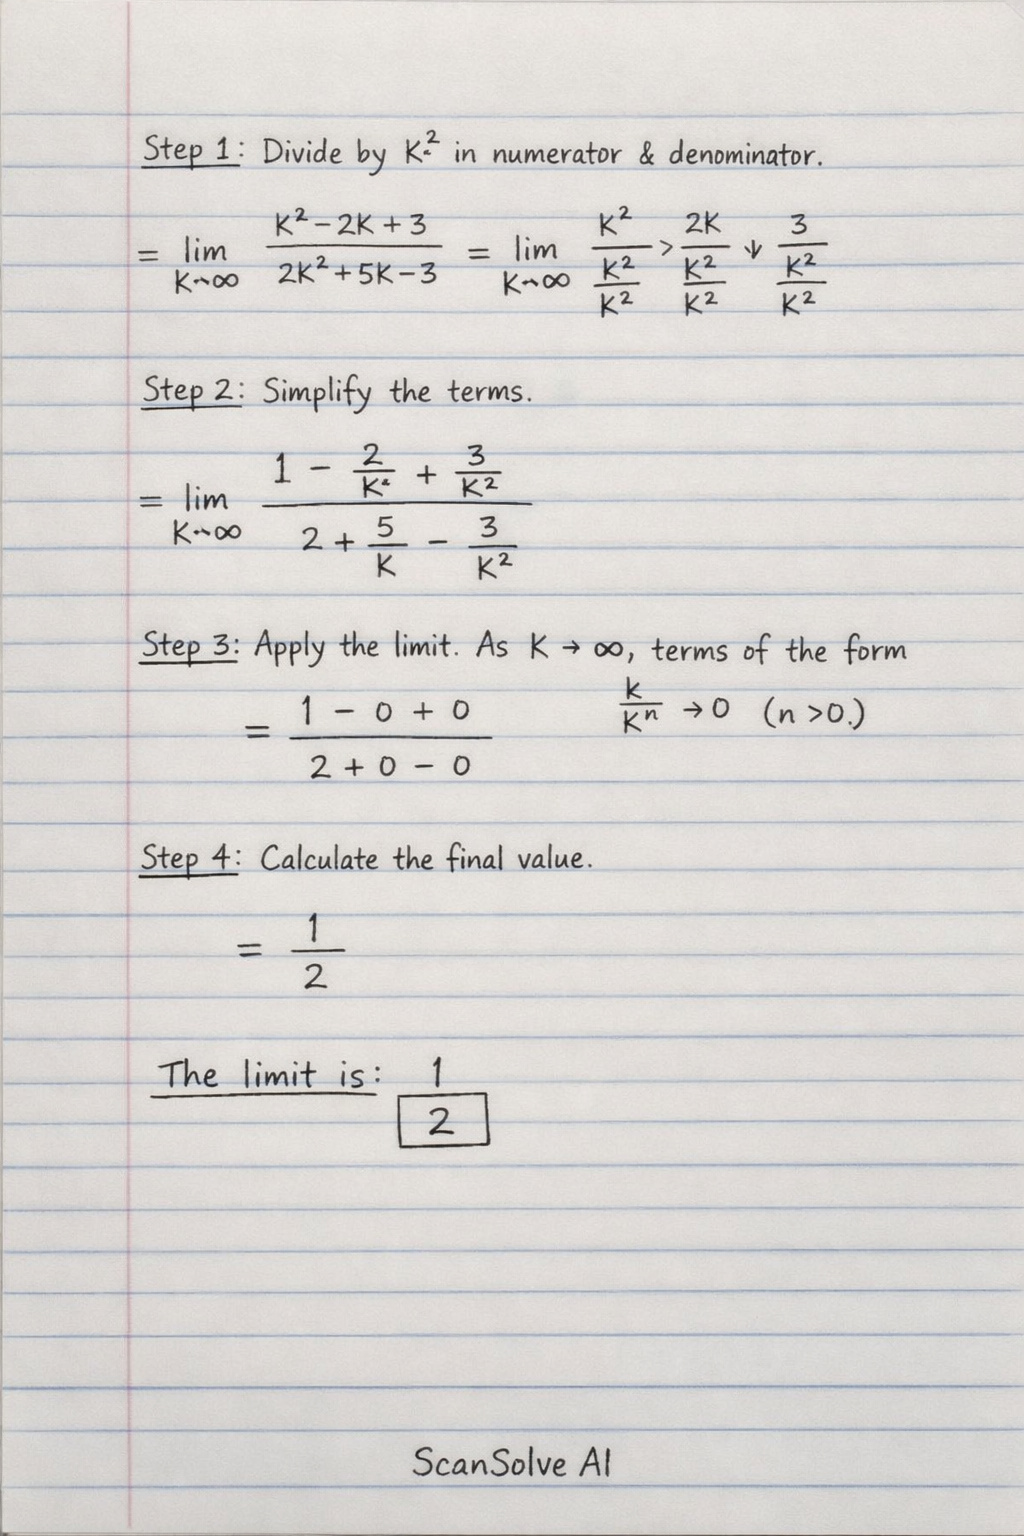 Step 1: Divide by K² in numerator & denominator.
= lim K→∞ (K² − 2K + 3)/(2K² + 5K − 3) = lim K→∞ K²/(K²/K²) > 2K/(K²/K²) ↓ 3/(K²/K²)
Step 2: Simplify the terms.
= lim K→∞ (1 − 2/K + 3/K²)/(2 + 5/K − 3/K²)
Step 3: Apply the limit. As K → ∞, terms of the form
= (1 − 0 + 0)/(2 + 0 − 0) k/Kⁿ → 0 (n >0.)
Step 4: Calculate the final value.
= 1/2
The limit is: 1/2
ScanSolve AI